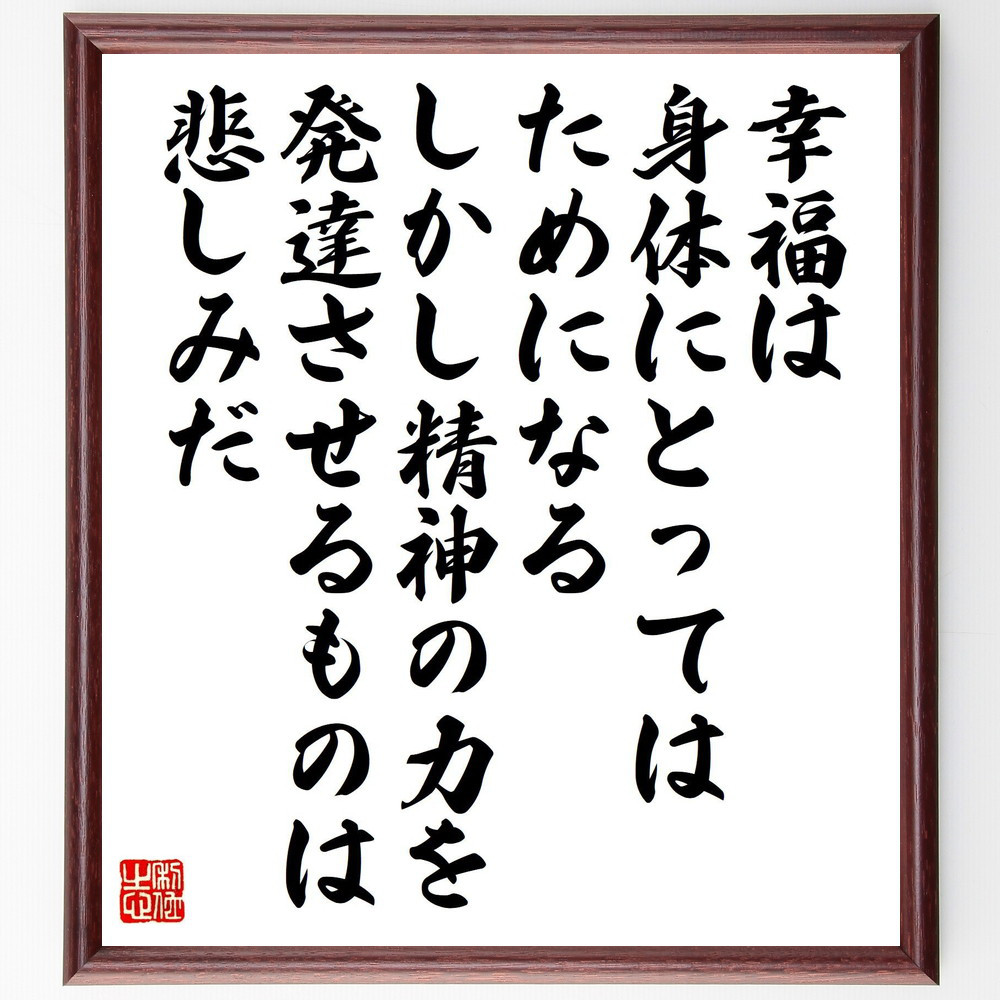 幸福は
身体にとっては
ためになる
しかし精神の力を
発達させるものは
悲しみだ